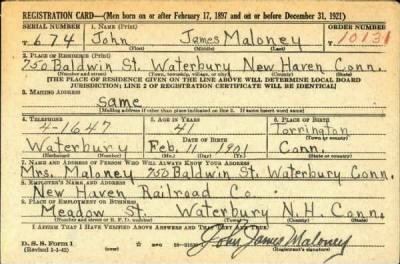 REGISTRATION CARD—(Men born on or after February 17, 1897 and on or before December 31, 1921)
SERIAL NUMBER 1. NAME (Print) ORDER NUMBER
T 674 John James Maloney 10131
(First) (Middle) (Last)
2. PLACE OF RESIDENCE (Print)
750 Baldwin St. Waterbury New Haven Conn.
(Number and street) (Town, township, village, or city) (County) (State)
[THE PLACE OF RESIDENCE GIVEN ON THE LINE ABOVE WILL DETERMINE LOCAL BOARD
JURISDICTION; LINE 2 OF REGISTRATION CERTIFICATE WILL BE IDENTICAL]
3. MAILING ADDRESS
same
[Mailing address if other than place indicated on line 2. If same insert word same]
4. TELEPHONE 5. AGE IN YEARS 6. PLACE OF BIRTH
4-1647 41 Torrington
DATE OF BIRTH (Town or county)
Waterbury Feb. 11 1901 Conn.
(Exchange) (Number) (Mo.) (Day) (Yr.) (State or country)
7. NAME AND ADDRESS OF PERSON WHO WILL ALWAYS KNOW YOUR ADDRESS
Mrs. Maloney 750 Baldwin St. Waterbury Conn.
8. EMPLOYER'S NAME AND ADDRESS
New Haven Railroad Co.
9. PLACE OF EMPLOYMENT OR BUSINESS
Meadow St. Waterbury N.H. Conn.
(Number and street or R. F. D. number) (Town) (County) (State)
I AFFIRM THAT I HAVE VERIFIED ABOVE ANSWERS AND THAT THEY ARE TRUE.
D. S. S. Form 1
(Revised 1-1-42) (over) John James Maloney